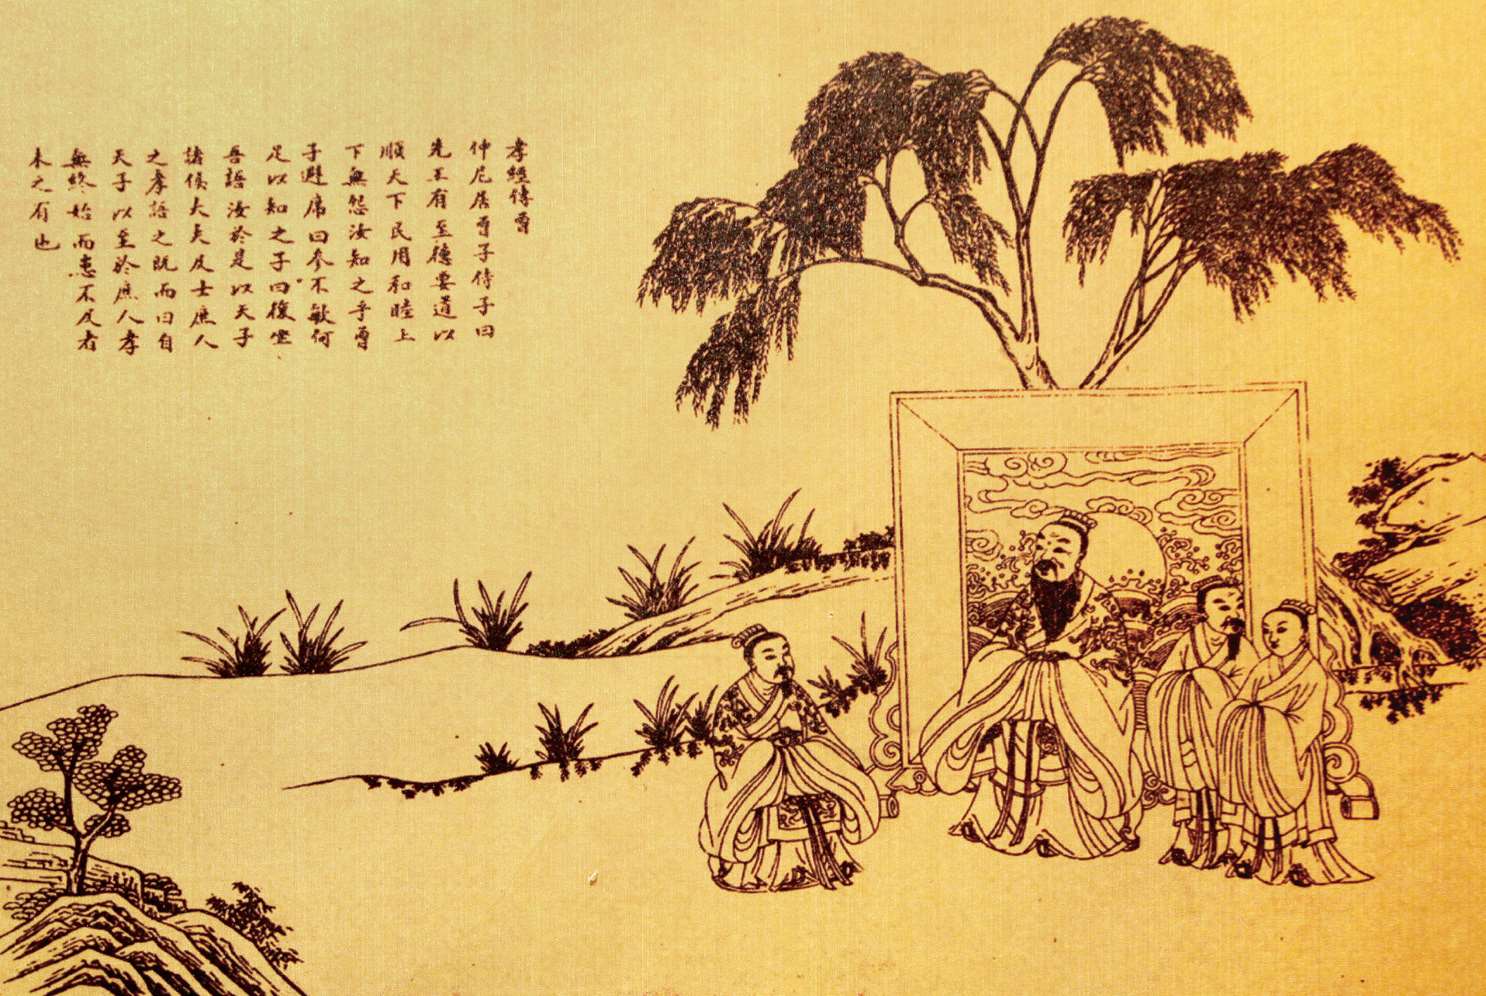 孝經傳曾
仲尼居曾子侍子曰
先王有至德要道以
順天下民用和睦上
下無怨汝知之乎曾
子避席曰參不敏何
足以知之子曰復坐
吾語汝於是以天子
諸侯大夫及士庶人
之孝語之既而曰自
天子以至於庶人孝
無終始而患不及者
未之有也